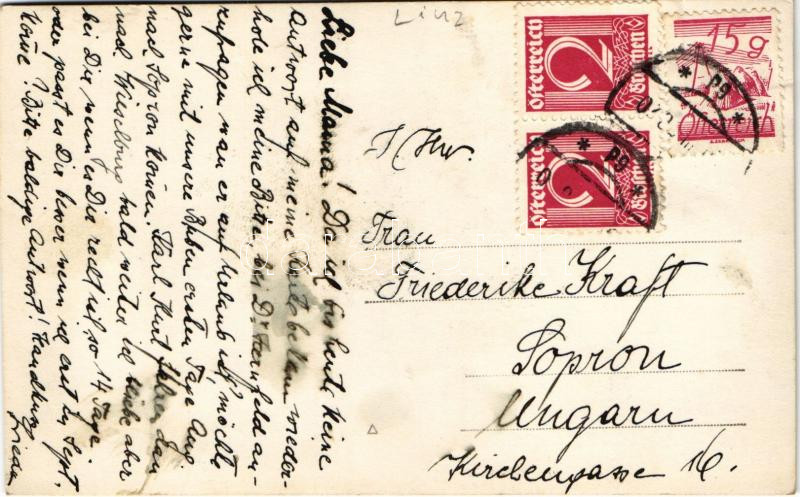 Linz
Liebe Mama! Da ich bis heute keine
Antwort auf meine bekam wieder-
hole ich meine Bitte bei Dr Sternfeld an-
zufragen wan er auf Urlaub ist, möchte
gerne mit unsere Buben ersten Tage Aug
nach Sopron kommen. Karl Kurt fahren dan
nach Wieselburg bald weiter ich bleibe aber
bei Dir wenn es Dir recht ist so 14 Tage
oder passt es Dir besser wenn ich erst Sept.
kome? Bitte baldige Antwort! Handkuss
Österreich
2
Groschen
Österreich
2
Groschen
15g
Österreich
I. Hw.
Frau
Friederike Kraft
Sopron
Ungarn
Kirchengasse 16.